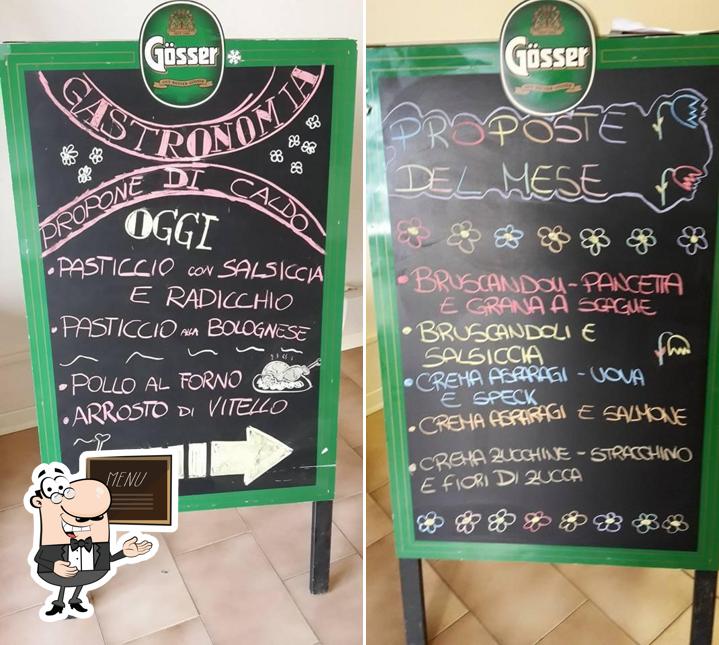 Gösser
GASTRONOMIA
PROPONE DI CALDO
OGGI
• PASTICCIO CON SALSICCIA
E RADICCHIO
• PASTICCIO ALLA BOLOGNESE
• POLLO AL FORNO
• ARROSTO DI VITELLO
MENU
Gösser
PROPOSTE
DEL MESE
• BRUSCANDOLI - PANCETTA
E GRANA A SCAGLIE
• BRUSCANDOLI E
SALSICCIA
• CREMA ASPARAGI - UOVA
E SPECK
• CREMA ASPARAGI E SALMONE
• CREMA ZUCCHINE - STRACCHINO
E FIORI DI ZUCCA